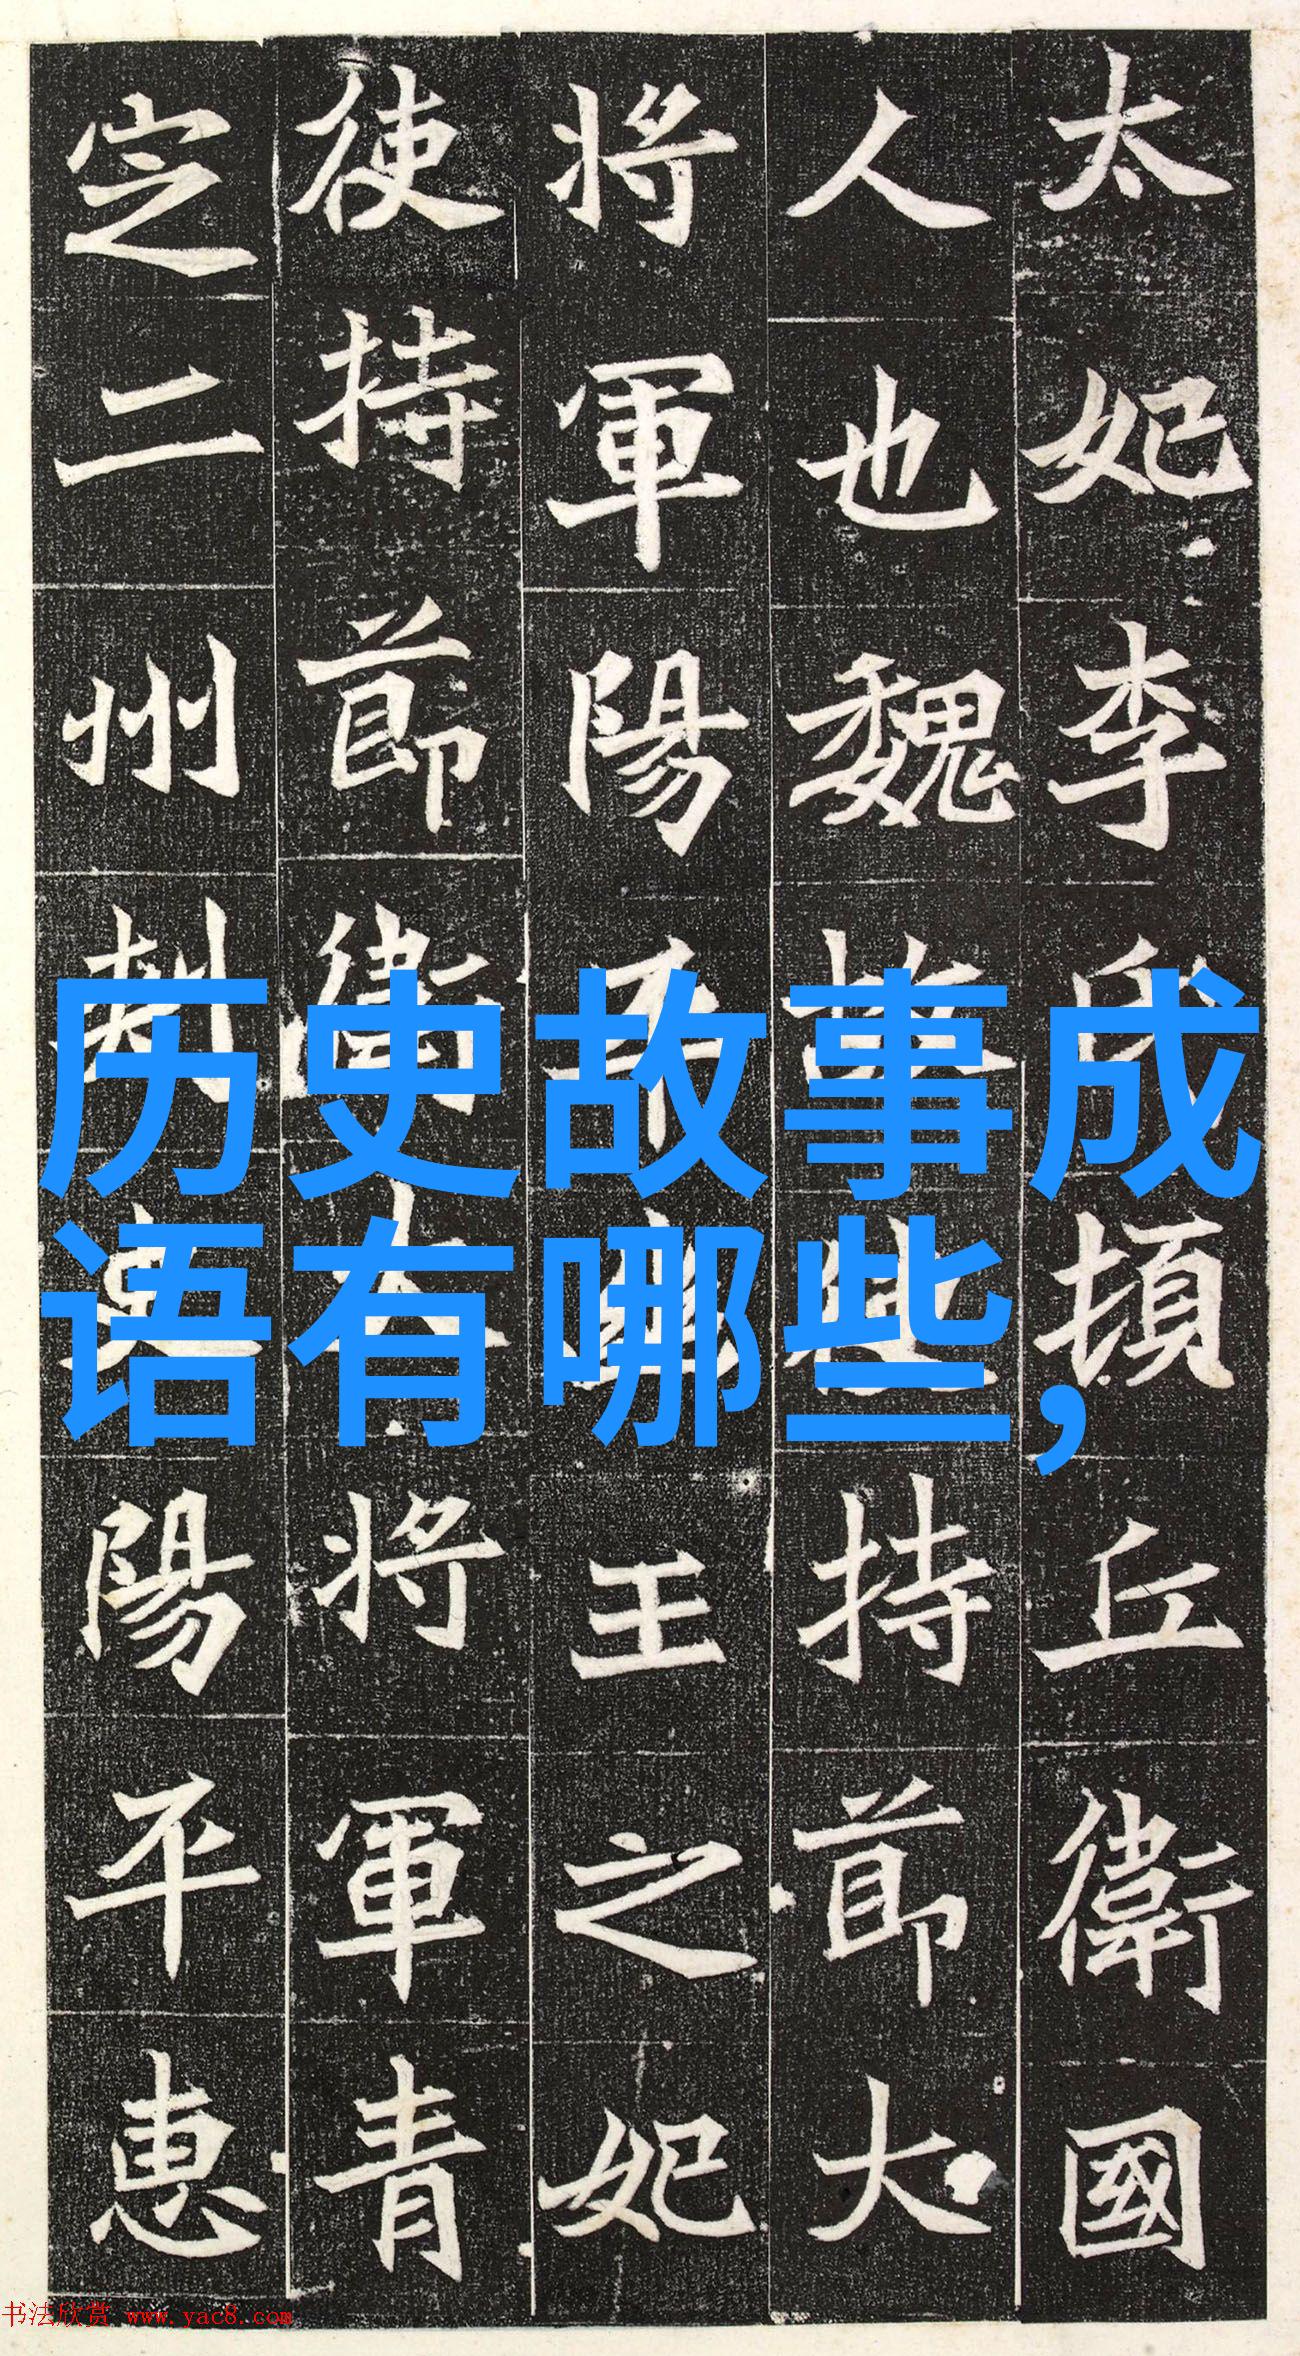 太妃李氏頓丘衛國
人也魏故使持節大
將軍陽平幽王之妃
使持節衛大將軍青
定二州刺史陽平惠
历史故事成
语有哪些,
书法欣赏 www.yac8.com